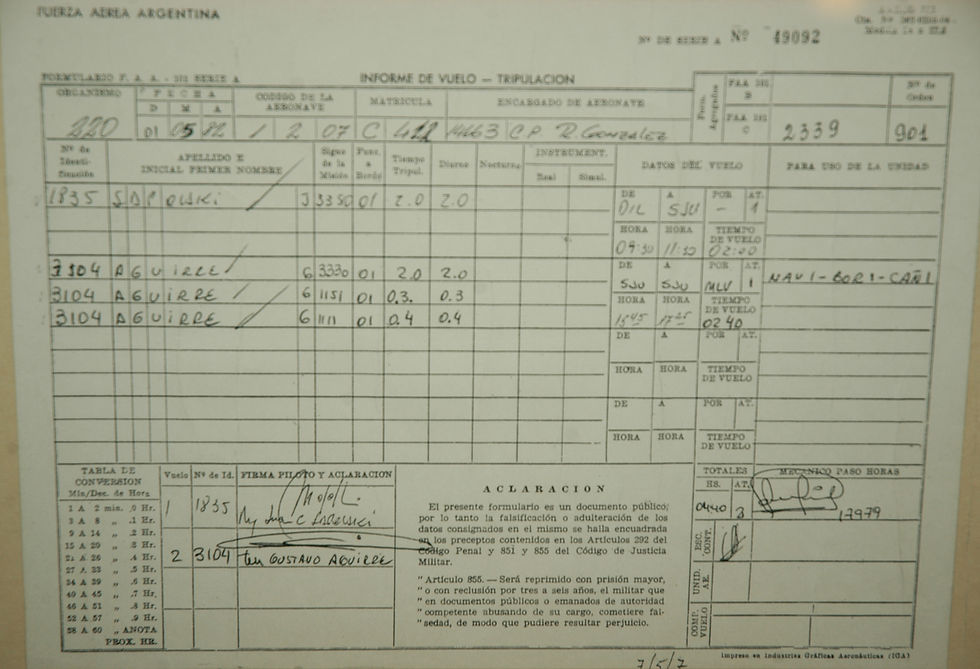 FUERZA AEREA ARGENTINA
Nº DE SERIE A Nº 49092
FORMULARIO F. A. A. - SERIE A
INFORME DE VUELO — TRIPULACION
ORGANISMO
FECHA
D M A
CODIGO DE LA AERONAVE
MATRICULA
ENCARGADO DE AERONAVE
Nº de Orden
220 01 05 82 1 2 07 C 1463 C.P. R. GONZALEZ 2339 901
Nº de Identificación
APELLIDO E INICIAL PRIMER NOMBRE
Tiempo Tripul.
Diurno
Nocturno
INSTRUMENT.
Real Simul.
DATOS DEL VUELO
PARA USO DE LA UNIDAD
DE A POR AT.
1835 J 3350 01 2.0 2.0 SJU - 1
HORA HORA TIEMPO DE VUELO
09:30 11:30 02:00
3104 AGUIRRE 6 3330 01 2.0 2.0
DE A POR AT.
SJU SJU MLV 1
3104 AGUIRRE 6 1151 01 0.3. 0.3
HORA HORA TIEMPO DE VUELO
3104 AGUIRRE 6 1111 01 0.4 0.4 15 45 17 25 02 40
DE A POR AT.
HORA HORA TIEMPO DE VUELO
DE A POR AT.
HORA HORA TIEMPO DE VUELO
TABLA DE CONVERSION
Min/Dec. de Hora
1 A 2 min. .0 Hr.
3 A 8 „ .1 Hr.
9 A 14 „ .2 Hr.
15 A 20 „ .3 Hr.
21 A 26 „ .4 Hr.
27 A 33 „ .5 Hr.
34 A 39 „ .6 Hr.
40 A 45 „ .7 Hr.
46 A 51 „ .8 Hr.
52 A 57 „ .9 Hr.
58 A 60 „ ANOTA PROX. HR.
Vuelo Nº de Id. FIRMA PILOTO Y ACLARACION
1 1835
2 3104 GUSTAVO AGUIRRE
ACLARACION
El presente formulario es un documento público,
por lo tanto la falsificación o adulteración de los
datos consignados en el mismo se halla encuadrada
en los preceptos contenidos en los Artículos 292 del
Código Penal y 851 y 855 del Código de Justicia
Militar.
"Artículo 855. — Será reprimido con prisión mayor,
" o con reclusión por tres a seis años, el militar que
" en documentos públicos o emanados de autoridad
" competente abusando de su cargo, cometiere fal-
" sedad, de modo que pudiere resultar perjuicio.
TOTALES
HS. AT.
MECANICO PASO HORAS
0440 17979
ESC. CONT.
UNID. AE.
COMP. VUELO
Impreso en Industrias Gráficas Aeronáuticas (IGA)